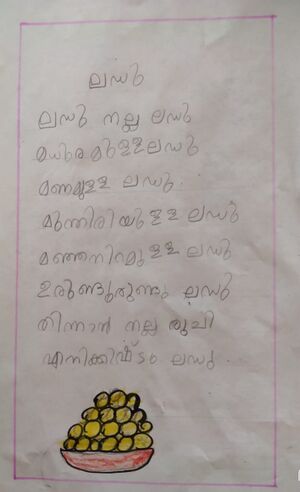 ലഡു
ലഡു നല്ല ലഡു
മധുരമുള്ളലഡു
മണമുള്ള ലഡു.
മുന്തിരിയുള്ള ലഡു
മഞ്ഞനിറമുള്ള ലഡു
ഉരുണ്ടുരുണ്ട ലഡു
തിന്നാൻ നല്ല രുചി
എനിക്കിഷ്ടം ലഡു.